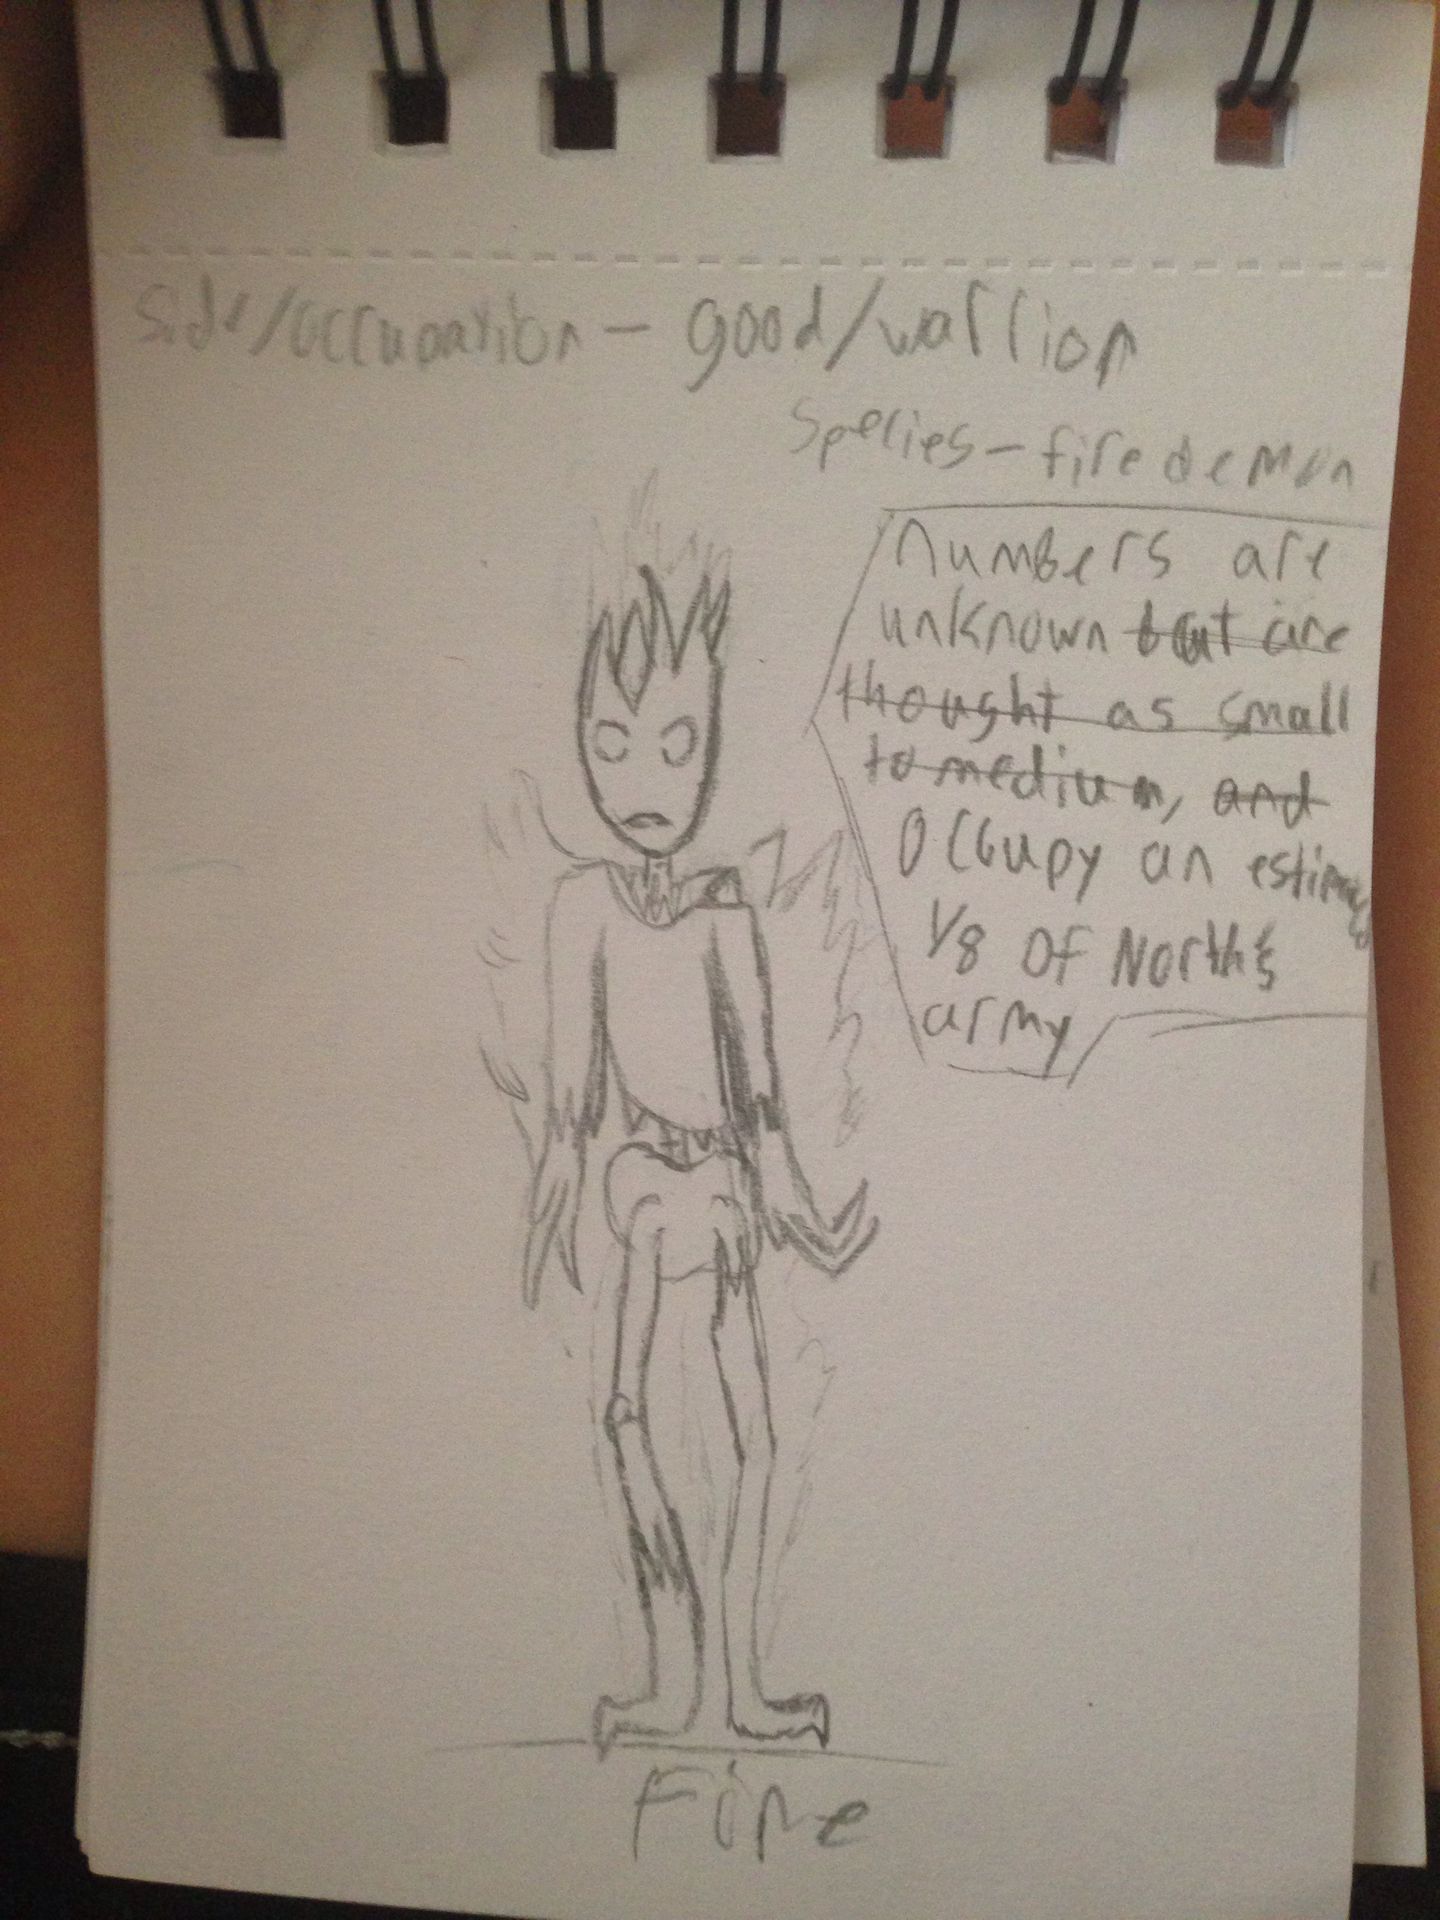 side/occupation - good/warrior
species - fire demon
numbers are
unknown but are
thought as small
to medium, and
occupy an estimated
1/8 of North's
army
Fire